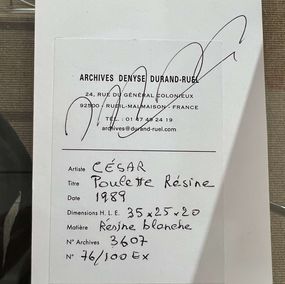 ARCHIVES DENYSE DURAND-RUEL
24, RUE DU GÉNÉRAL COLONIEUX
92500 - RUEIL-MALMAISON - FRANCE
TÉL. : 01 47 49 24 19
archives@durand-ruel.com
Artiste CÉSAR
Titre Poulette Résine
Date 1989
Dimensions H. L. E. 35 x 25 x 20
Matière Résine blanche
N° Archives 3607
N° 76/100 Ex